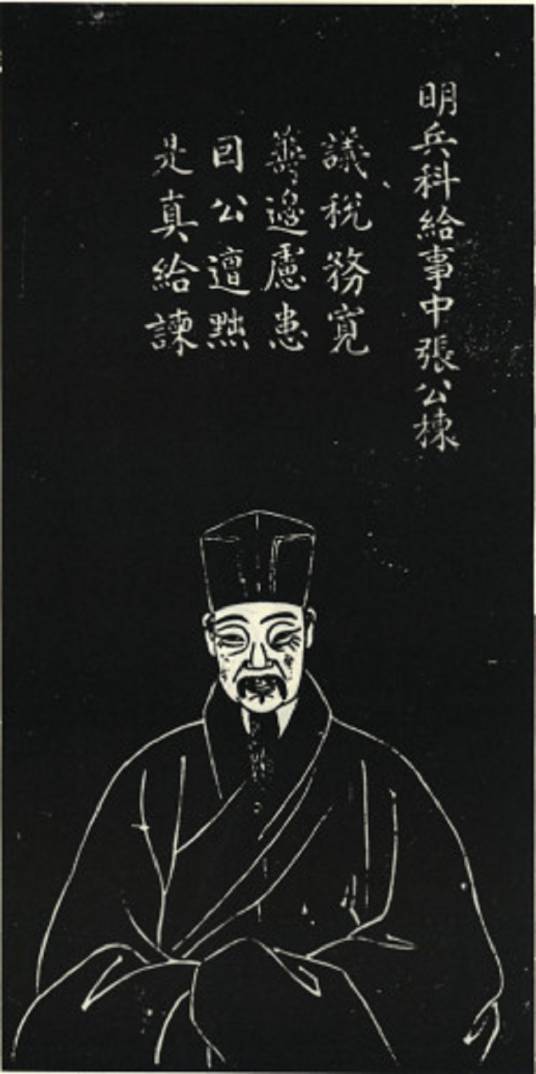 明兵科給事中張公棟
議稅務寬
善邊慮患
回公遭黜
是真給諫